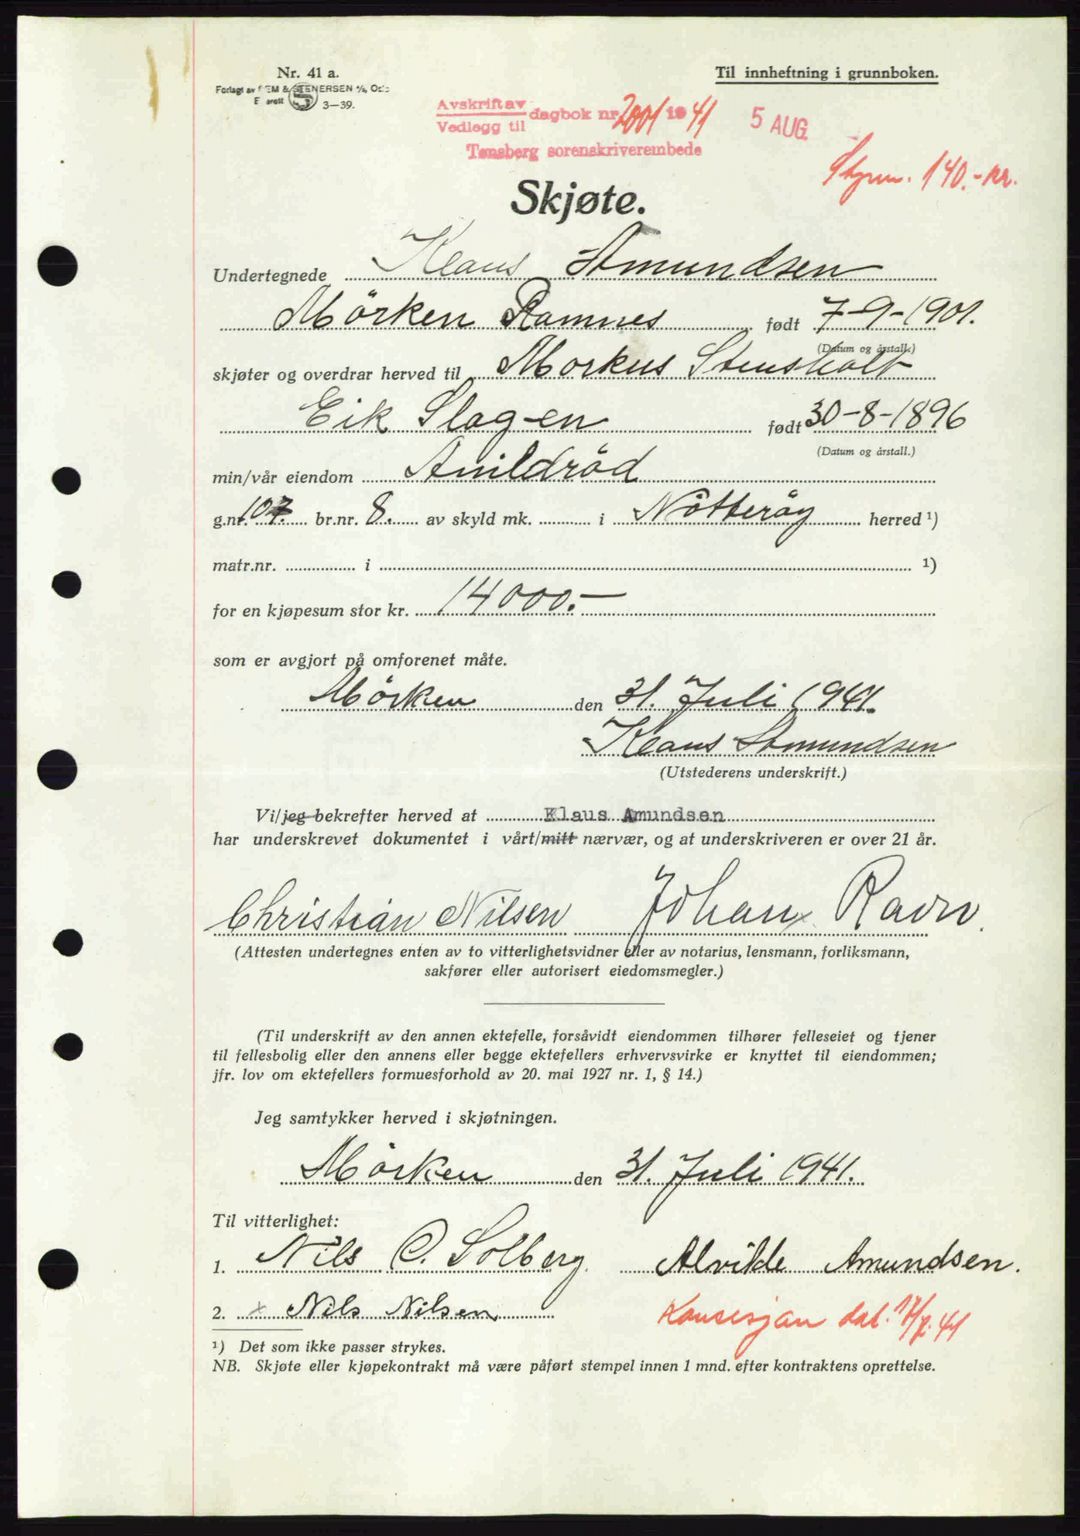 Nr. 41 a.
Til innheftning i grunnboken.
Forlagt av SEM & STENERSEN A/S, Oslo
3—39.
Avskrift av
Vedlegg til
dagbok nr. 2001 1941
5 AUG.
Tønsberg sorenskriverembede
140.- kr.
Skjøte.
Undertegnede Klaus Amundsen
Mörken Ramnes født 7-9-1901.
(Datum og årstall.)
skjøter og overdrar herved til Markus Stensholt
Eik Slagen født 30-8-1896
(Datum og årstall.)
min/vår eiendom
g.nr. 107. br.nr. 8. av skyld mk. i Nötteröy herred ¹)
matr.nr. i ¹)
for en kjøpesum stor kr. 14000.-
som er avgjort på omforenet måte.
Mörken den 31. Juli 1941.
Klaus Amundsen
(Utstederens underskrift.)
Vi/jeg bekrefter herved at Klaus Amundsen
har underskrevet dokumentet i vårt/mitt nærvær, og at underskriveren er over 21 år.
Christian Nilsen Johan Ravn.
(Attesten undertegnes enten av to vitterlighetsvidner eller av notarius, lensmann, forliksmann,
sakfører eller autorisert eiedomsmegler.)
(Til underskrift av den annen ektefelle, forsåvidt eiendommen tilhører felleseiet og tjener
til fellesbolig eller den annens eller begge ektefellers erhvervsvirke er knyttet til eiendommen;
jfr. lov om ektefellers formuesforhold av 20. mai 1927 nr. 1, § 14.)
Jeg samtykker herved i skjøtningen.
Mörken den 31. Juli 1941.
Til vitterlighet:
1. Nils C. Solberg Alvilde Amundsen.
2. x Nils Nilsen
Konsesjon dat. 17/7.41
¹) Det som ikke passer strykes.
NB. Skjøte eller kjøpekontrakt må være påført stempel innen 1 mnd. efter kontraktens oprettelse.